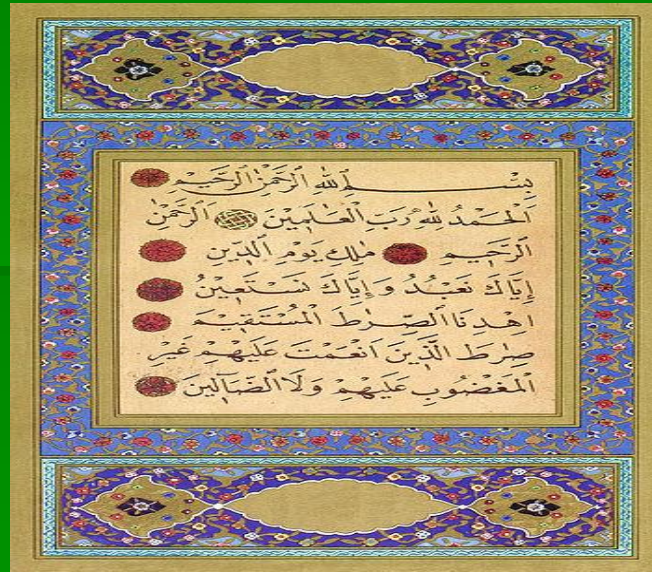 بِسْمِ اللّٰهِ الرَّحْمٰنِ الرَّحِيمِ
اَلْحَمْدُ لِلّٰهِ رَبِّ الْعَالَمِينَ اَلرَّحْمٰنِ
الرَّحِيمِ مَالِكِ يَوْمِ الدِّينِ
اِيَّاكَ نَعْبُدُ وَاِيَّاكَ نَسْتَعِينُ
اِهْدِنَا الصِّرَاطَ الْمُسْتَقِيمَ
صِرَاطَ الَّذِينَ اَنْعَمْتَ عَلَيْهِمْ غَيْرِ
الْمَغْضُوبِ عَلَيْهِمْ وَلَا الضَّالِّينَ